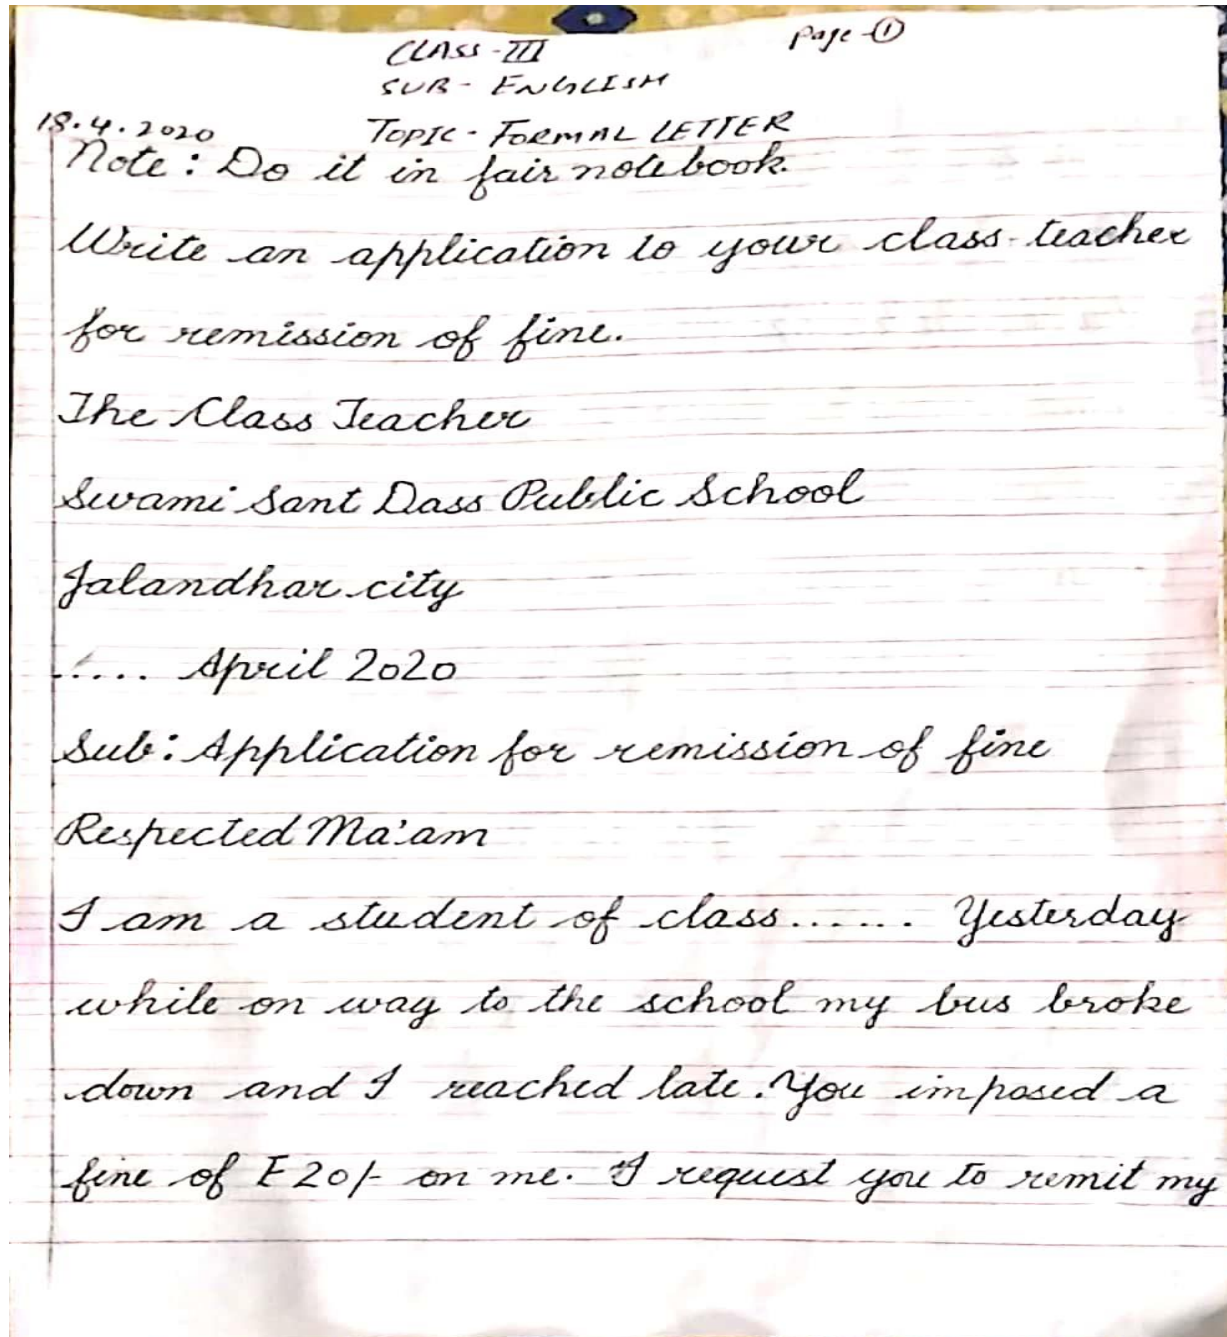 Page-①
CLASS-III
SUB- ENGLISH
18.4.2020 TOPIC- FORMAL LETTER
Note: Do it in fair notebook.
Write an application to your class-teacher
for remission of fine.
The Class Teacher
Swami Sant Dass Public School
Jalandhar city
..... April 2020
Sub: Application for remission of fine
Respected Ma'am
I am a student of class...... Yesterday
while on way to the school my bus broke
down and I reached late. You imposed a
fine of ₹20/- on me. I request you to remit my